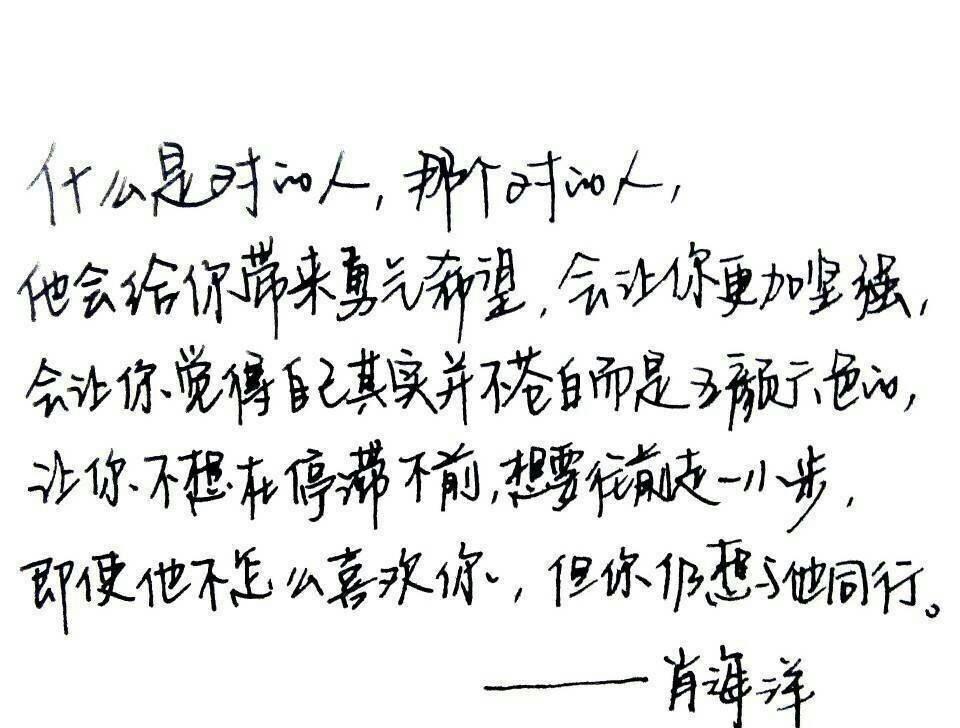 什么是对的人,那个对的人,
他会给你带来勇气希望,会让你更加坚强,
会让你觉得自己其实并不苍白而是五颜六色的,
让你不想在停滞不前,想要往前走一小步,
即使他不怎么喜欢你,但你仍想与他同行。
——肖海洋